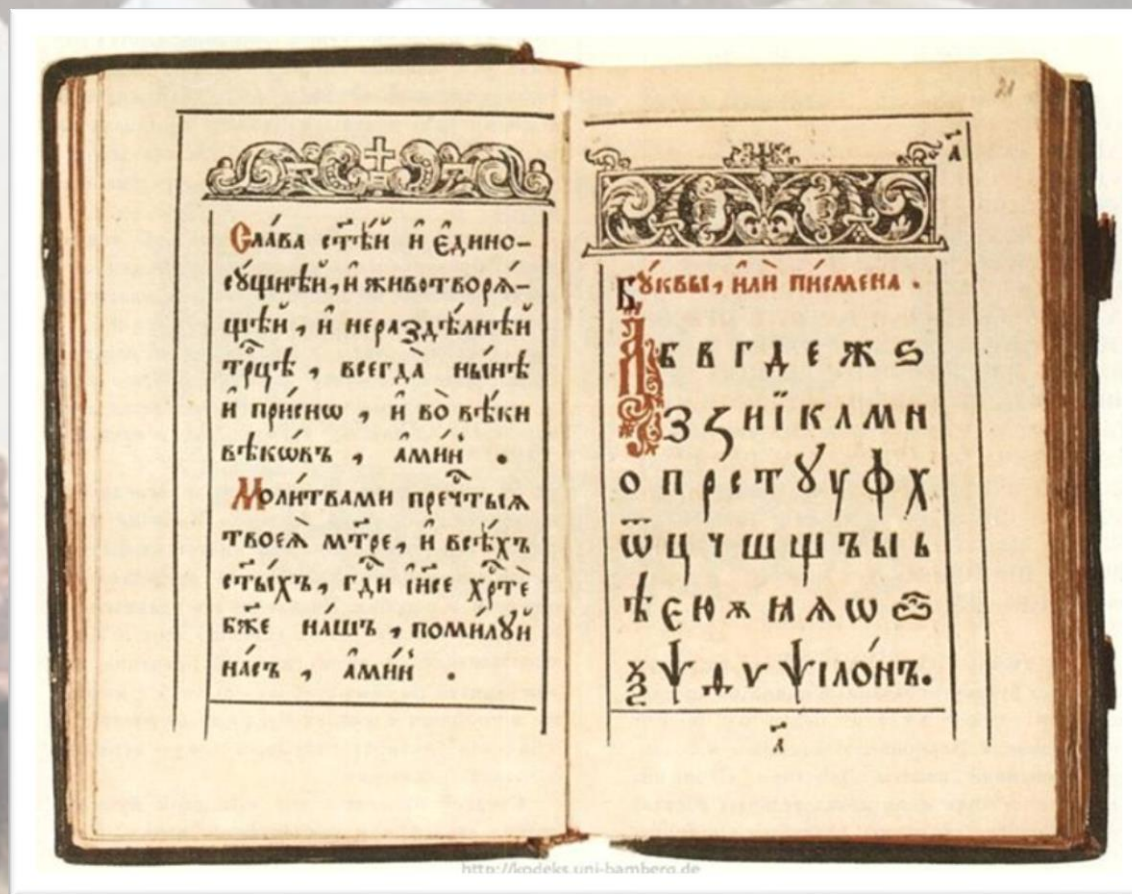 Сла́ва ст҃ѣ́й и҆ є҆дино-
сꙋ́щнѣй, и҆ животворѧ́-
щѣй, и҆ нераздѣ́лнѣй
трⷪ҇цѣ, всегда̀ ны́нѣ
и҆ при́снѡ, и҆ во̀ вѣ́ки
вѣкѡ́въ, а҆ми́нь.
Моли́твами пречⷭ҇тыѧ
твоеѧ̀ мт҃ре, и҆ всѣ́хъ
ст҃ы́хъ, гдⷭ҇и і҆и҃се хрⷭ҇тѐ
бж҃е на́шъ, поми́лꙋй
на́съ, а҆ми́нь.
21
а҃
Бꙋ́квы, и҆лѝ пи́смена.
А б в г д е ж ѕ
З ꙁ и ї к л м н
о п р с т ꙋ у ф х
ѿ ц ч ш щ ъ ы ь
ѣ є ю ѫ ꙗ ѧ ѡ ѽ
ѯ ѱ ѳ ѵ ѱілѡ́нъ.
а҃
http://kodeks.uni-bamberg.de